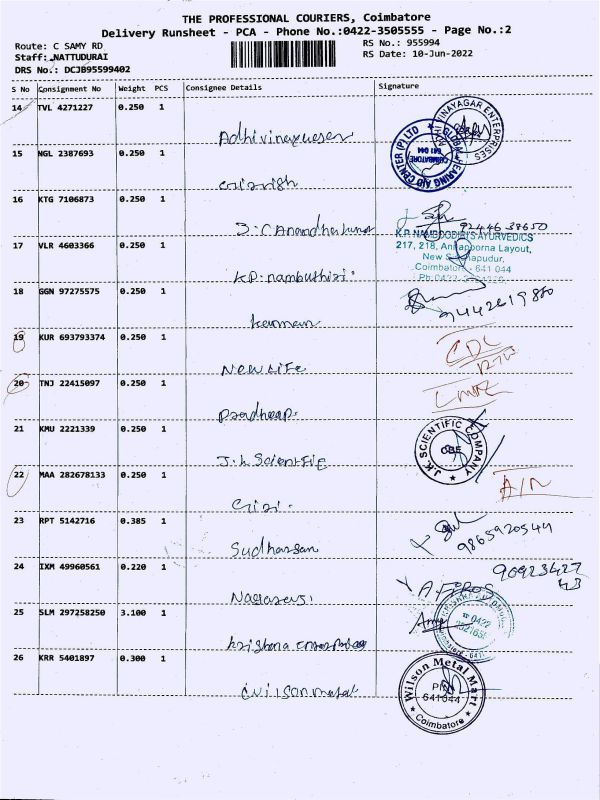 THE PROFESSIONAL COURIERS, Coimbatore
Delivery Runsheet - PCA - Phone No.:0422-3505555 - Page No.:2
Route: C SAMY RD
RS No.: 955994
Staff: NATTUDURAI
RS Date: 10-Jun-2022
DRS No.: DCJB95599402
S No Consignment No Weight PCS Consignee Details Signature
14 TVL 4271227 0.250 1
Adhivinayagar
ADHI VINAYAGAR ENTERPRISES
HEARING AID CENTER (P) LTD
COIMBATORE
641 044
15 NGL 2387693 0.250 1
16 KTG 7106873 0.250 1
J.C Anandhakumar
17 VLR 4603366 0.250 1
K.P. NAMBOODIRI'S AYURVEDICS
217, 218, Annapporna Layout,
Coimbatore - 641 044
K.P. nambuthiri
18 GGN 97275575 0.250 1
kannan
19 KUR 693793374 0.250 1
CDC
New Life
20 TNJ 22415097 0.250 1
Pradheep
21 KMU 2221339 0.250 1
J.K. SCIENTIFIC COMPANY
CBE
J.k Scientific
22 MAA 282678133 0.250 1
A/N
Giri.
23 RPT 5142716 0.385 1
9865920549
Sudharsan
24 IXM 49960561 0.220 1
A. FEROS
25 SLM 297258250 3.100 1
0422
krishna enterprises
26 KRR 5401897 0.300 1
Wilson Metal Mart
PIN
641044
Coimbatore
wilson metal